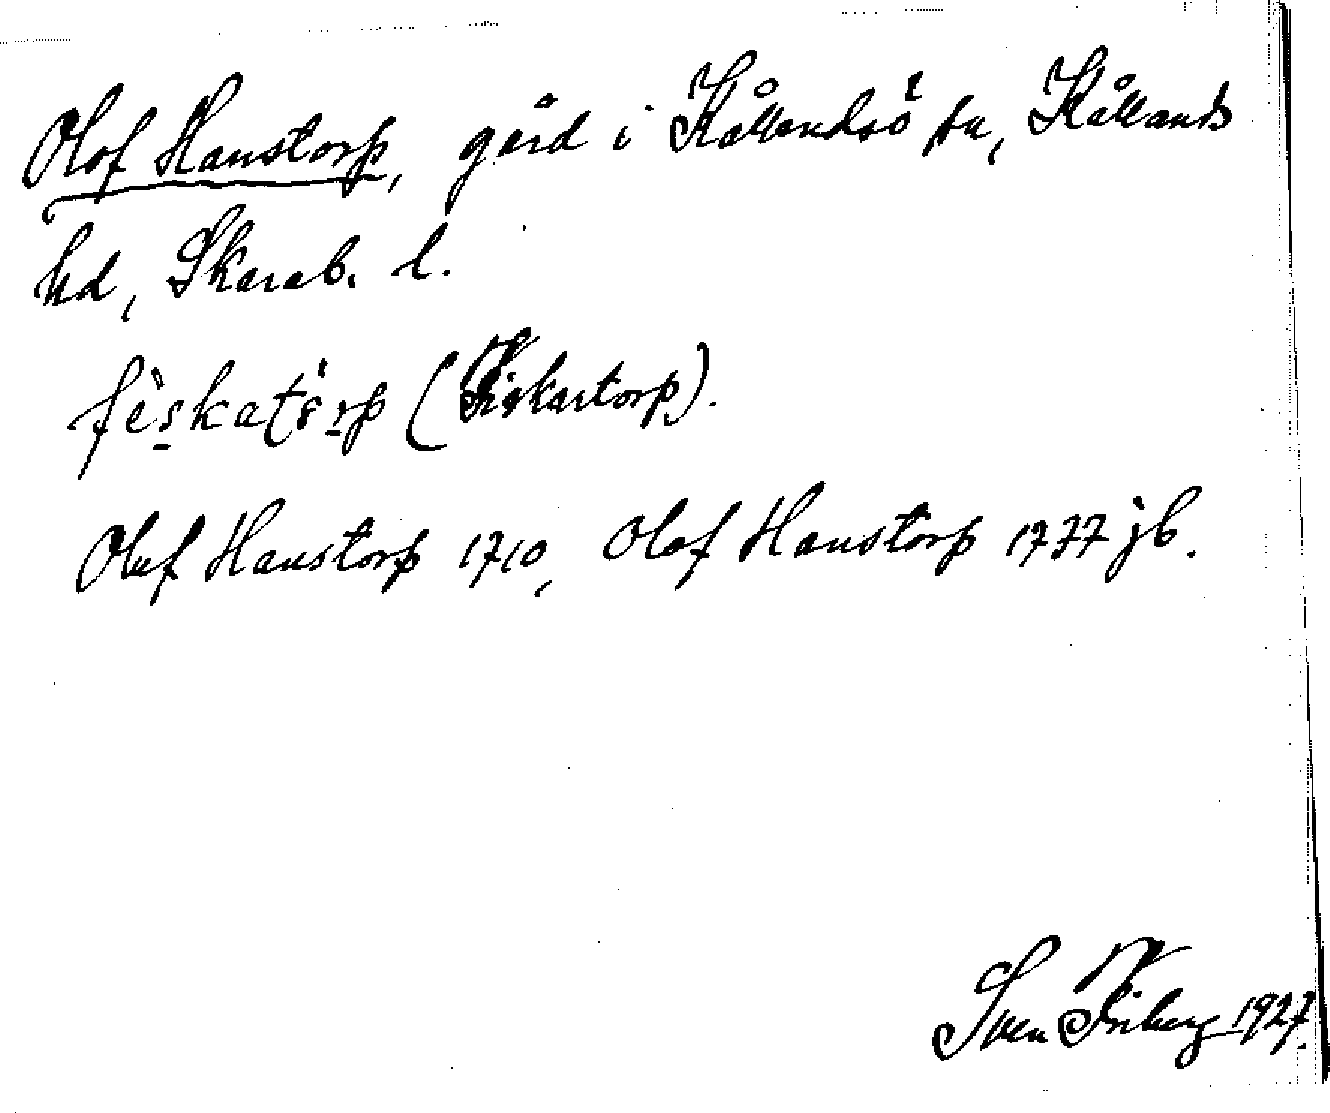 Olof Hanstorp, gård i Kållandsö sn, Kållands
hd, Skarab. l.
fiskatòrp (Fiskartorp).
Oluf Hanstorp 1710, Olof Hanstorp 1777 jb.
Sven Friberg 1927.